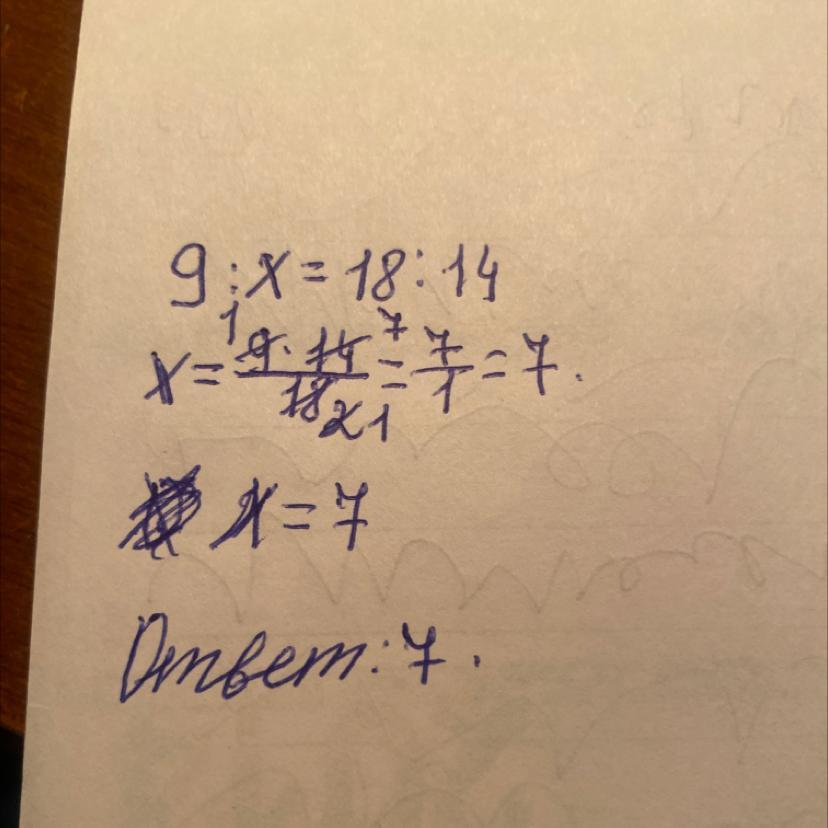 9 : x = 18 : 14
x = 9 · 14 / 18 = 7/1 = 7.
1 7 2 1
x = 7
Ответ: 7.